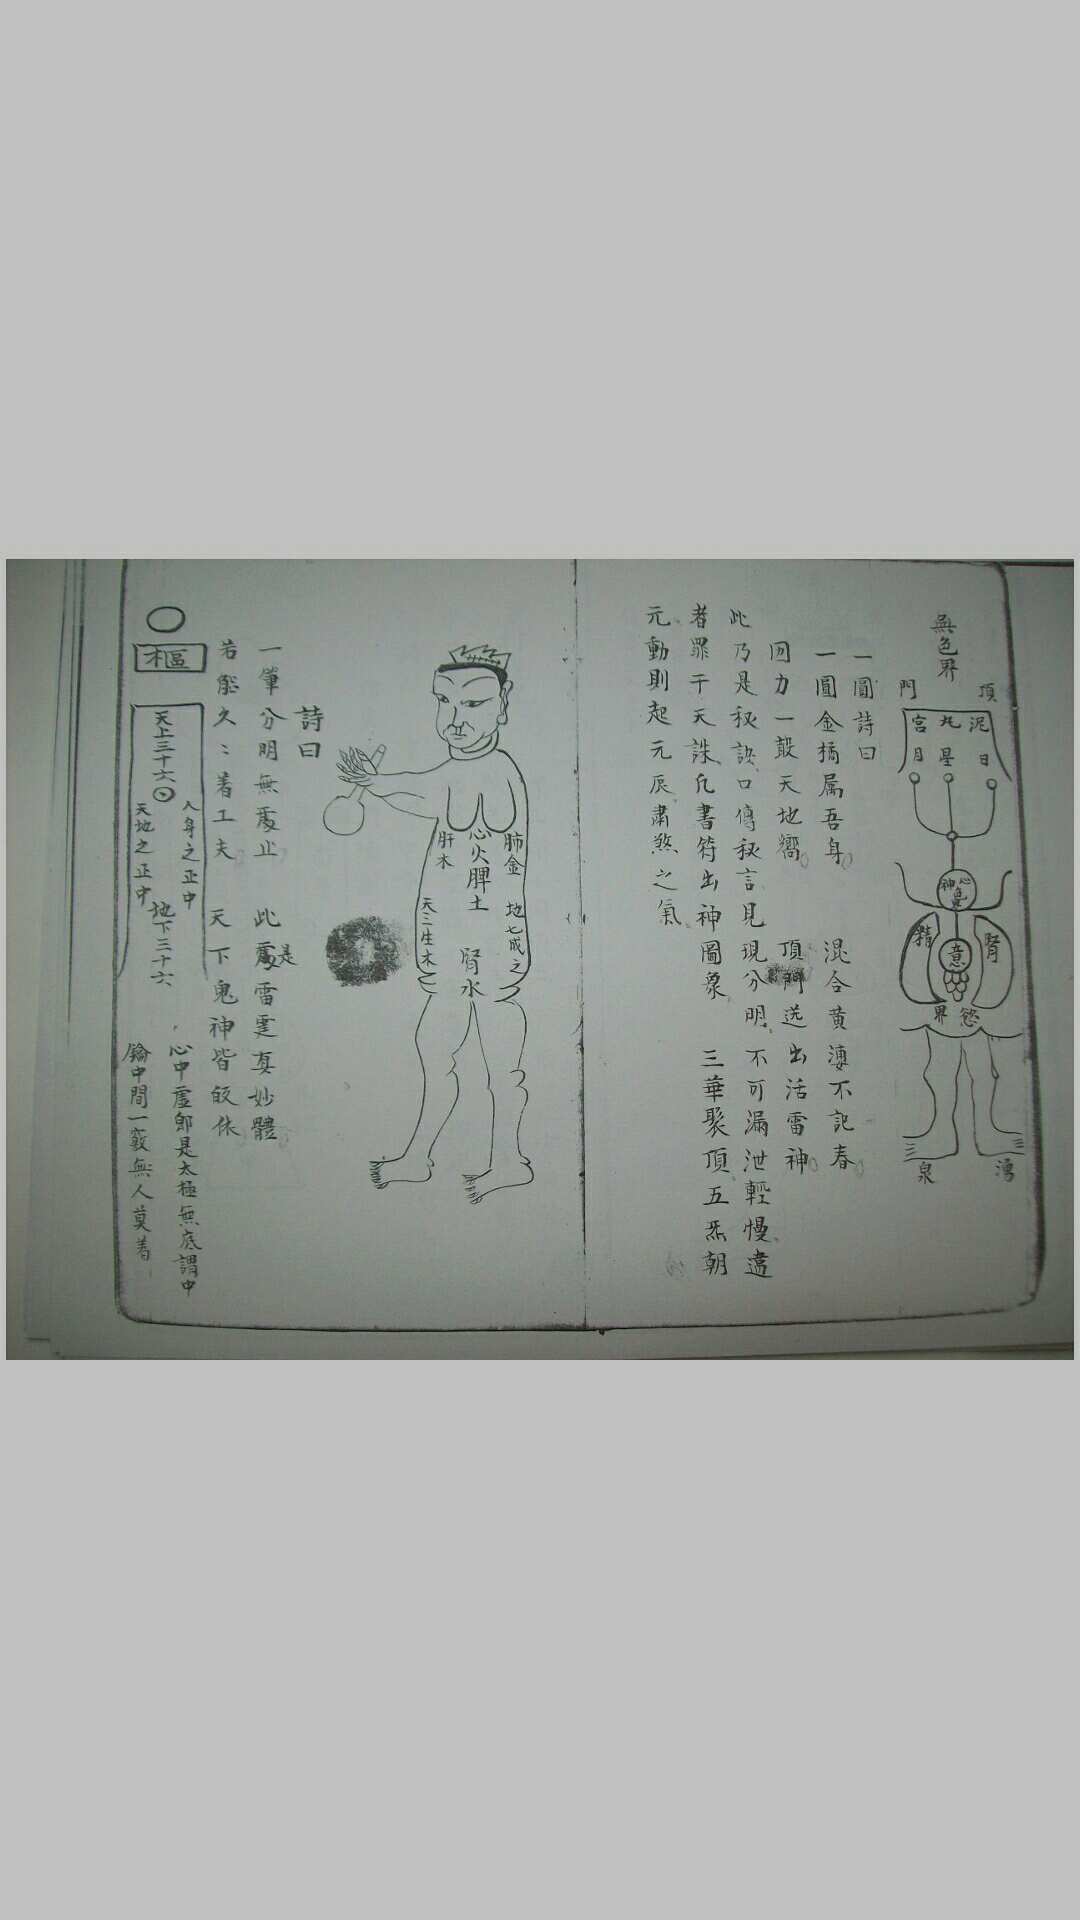 無色界
頂門
泥丸宮
日星月
心神色界
腎
精
意
慾界
湧泉
一圓詩曰
一圓金橘属吾身 混合黄
不記春
回力一
天地
頂門
出活雷神
此乃是秘訣口傳秘言見現分明不可漏泄輕慢違
者罪干天誅凡書符出神圖象 三華聚頂五炁朝
元動則起元辰肅煞之氣
肺金
心火脾土
肝木
地七成之
腎水
天三生木
詩曰
一筆分明無處止 此處是雷霆真妙體
若能久〻着工夫 天下鬼神皆皈依
樞
天上三十六
人身之正中
天地之正中
地下三十六
心中虛郎是太極無底謂中
鑰中間一竅無人莫着